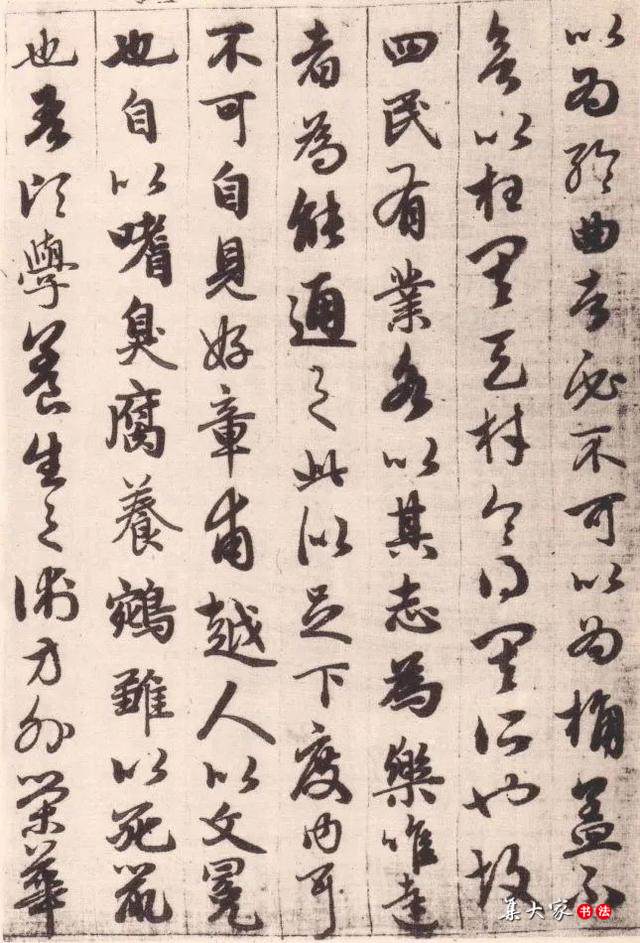 以为轮曲者必不可以为桷盖不
欲以枉其天材令得其所也故
四民有業各以其志為樂唯達
者為能通之此似足下度内耳
不可自見好章甫越人以文冕
也自以嗜臭腐養鵷雛以死鼠
也吾頃學養生之術方外榮華
集大家书法